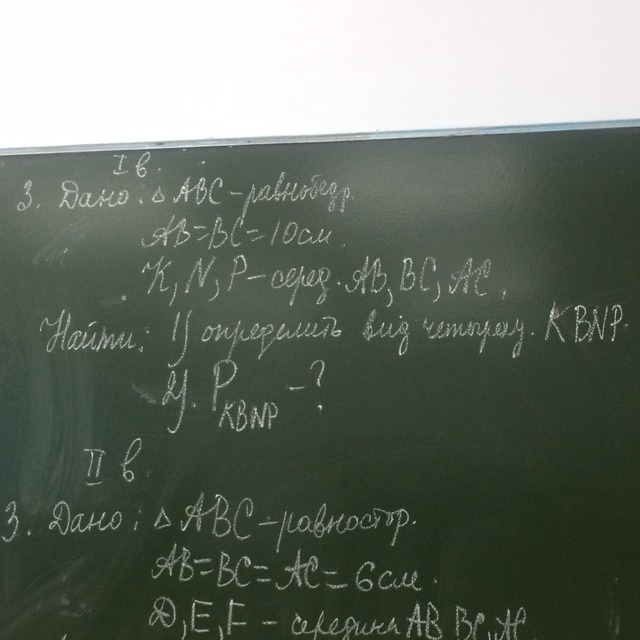 I в.
3. Дано: △ ABC - равнобедр.
AB=BC=10 см.
K, N, P - серед. AB, BC, AC.
Найти: 1) определить вид четыреу. KBNP.
2). P KBNP - ?
II в.
3. Дано: △ ABC - равностор.
AB=BC=AC=6см.
D, E, F - середина AB, BC, AC